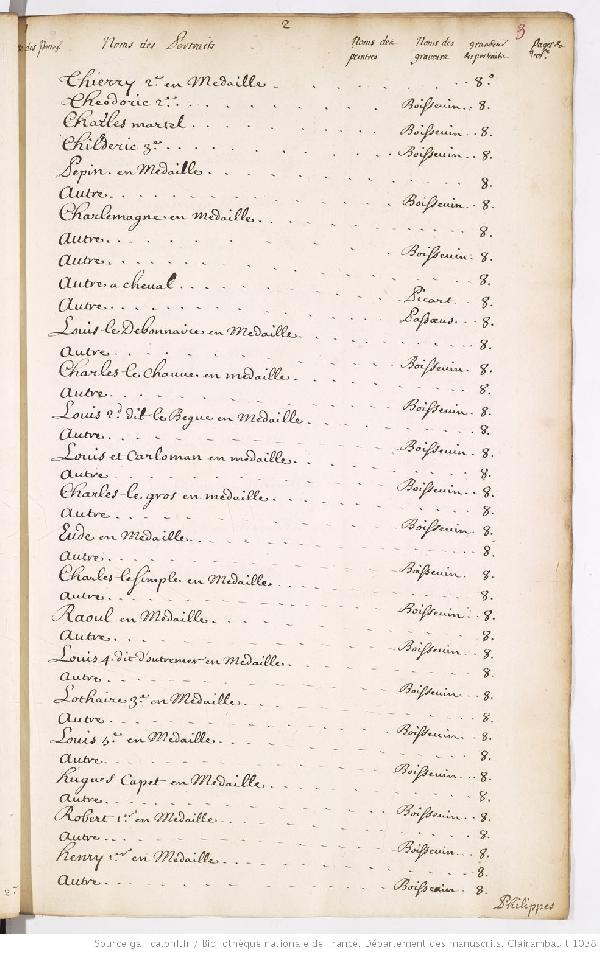 2
3
Noms des Portraits Noms des peintres Noms des graveurs graudeur des portraits Pages &
Thierry 2.e en Medaille 8.o
Theodoric 2.e Boissevin 8.
Charles martel Boissevin 8.
Childeric 3.e Boissevin 8.
Pepin en Medaille 8.
Autre Boissevin 8.
Charlemagne en medaille 8.
Autre Boissevin 8.
Autre 8.
Autre a cheval Picart 8.
Autre Passœus 8.
Louis le Debonnaire en Medaille 8.
Autre Boissevin 8.
Charles le Chauve en medaille 8.
Autre Boissevin 8.
Louis 2.d dit le Begue en Medaille 8.
Autre Boissevin 8.
Louis et Carloman en medaille 8.
Autre Boissevin 8.
Charles le gros en medaille 8.
Autre Boissevin 8.
Eude en Medaille 8.
Autre Boissevin 8.
Charles le Simple en Medaille 8.
Autre Boissevin 8.
Raoul en Medaille 8.
Autre Boissevin 8.
Louis 4. dit d'outremer en Medaille 8.
Autre Boissevin 8.
Lothaire 3.e en Medaille 8.
Autre Boissevin 8.
Louis 5.e en Medaille 8.
Autre Boissevin 8.
hugues Capet en Medaille 8.
Autre Boissevin 8.
Robert 1.er en Medaille 8.
Autre Boissevin 8.
henry 1.er en Medaille 8.
Autre Boissevin 8.
Philippes
Source gallica.bnf.fr / Bibliothèque nationale de France. Département des manuscrits. Clairambault 1038